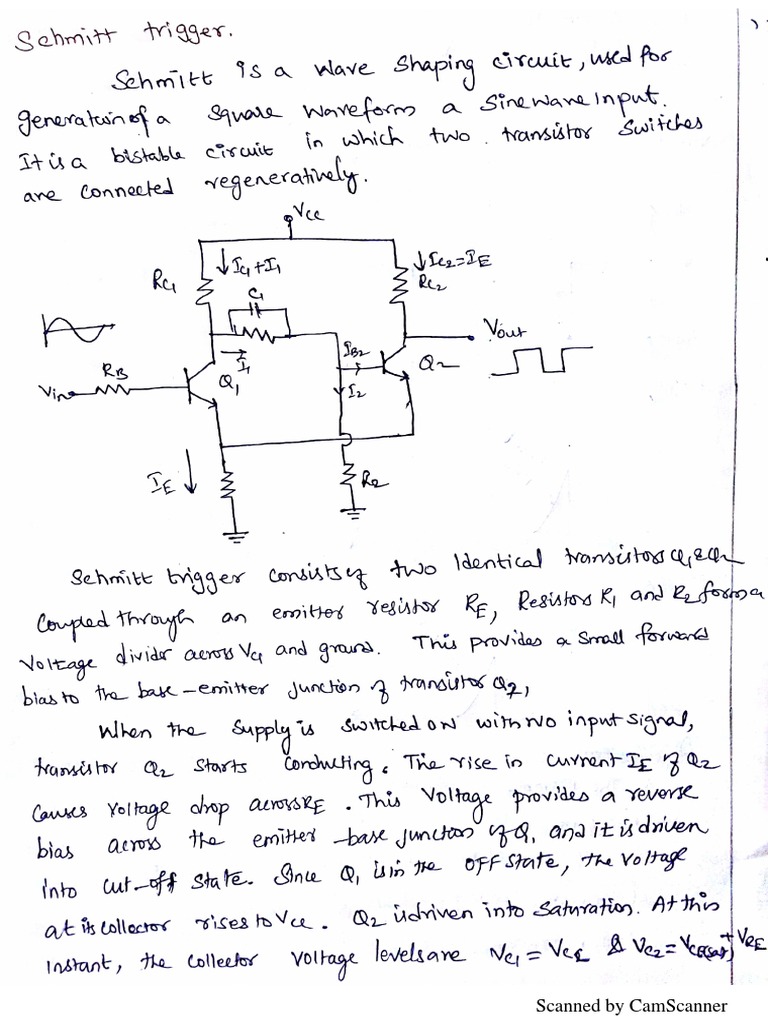 Schmitt trigger.
Schmitt is a wave shaping circuit, used for
generation of a square waveform a sinewave input.
It is a bistable circuit in which two transistor switches
are connected regeneratively.
Vcc
RC1
↓IC1+I1
↓IC2=IE
RC2
C1
Vout
IB2
I1
Q2
RB
Q1
I2
Vin
IE
R2
Schmitt trigger consists of two identical transistors Q1 & Q2
coupled through an emitter resistor RE, Resistors R1 and R2 form a
voltage divider across VC1 and ground. This provides a small forward
bias to the base-emitter junction of transistor Q2,
When the supply is switched ON with no input signal,
transistor Q2 starts conducting. The rise in current IE of Q2
causes voltage drop across RE. This voltage provides a reverse
bias across the emitter-base junction of Q1 and it is driven
into cut-off state. Since Q1 is in the OFF state, the voltage
at its collector rises to Vcc. Q2 is driven into saturation. At this
instant, the collector voltage levels are VC1 = VCC & VC2 = VCE(sat) + VRE
Scanned by CamScanner